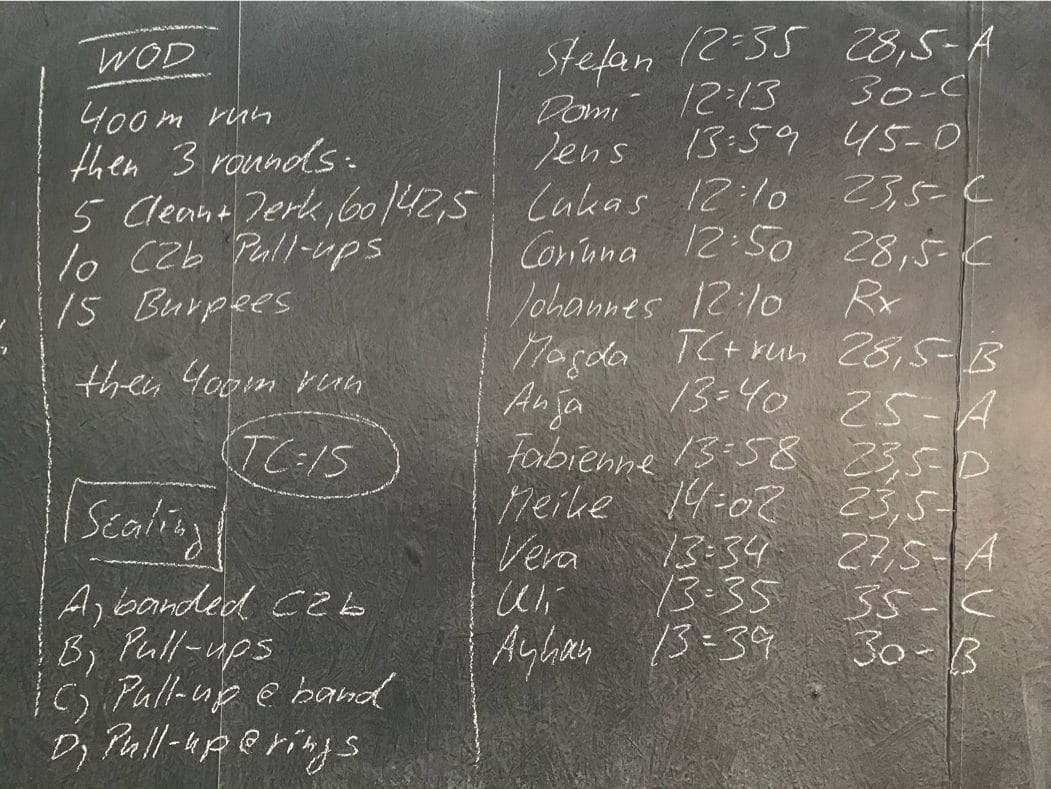 WOD
400m run
then 3 rounds:
5 Clean + Jerk, 60/42,5
10 C2b Pull-ups
15 Burpees
then 400m run
TC=15
Scaling
A, banded C2b
B, Pull-ups
C, Pull-up @ band
D, Pull-up @ rings
Stefan 12:35 28,5-A
Domi 12:13 30-C
Jens 13:59 45-D
Lukas 12:10 23,5-C
Corinna 12:50 28,5-C
Johannes 12:10 Rx
Magda TC+run 28,5-B
Anja 13:40 25-A
Fabienne 13:58 23,5-D
Meike 14:02 23,5-
Vera 13:34 27,5-A
Uli 13:35 35-C
Ayhan 13:39 30-B